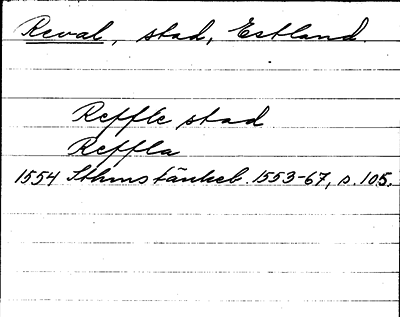 Reval, stad, Estland.
Reffle stad
Reffla
1554 Sthms tänkeb. 1553-67, s. 105.